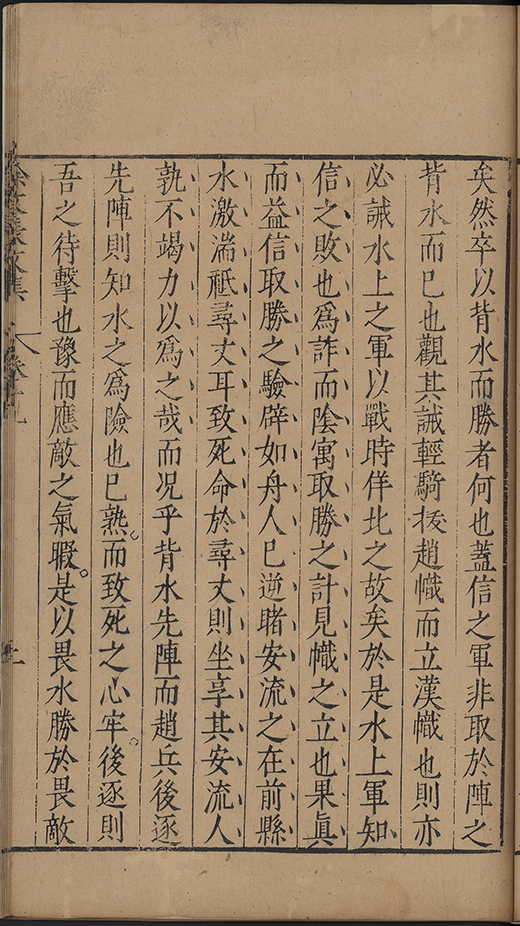 矣然卒以背水而勝者何也蓋信之軍非取於陣之
背水而已也觀其誡輕騎拔趙幟而立漢幟也則亦
必誡水上之軍以戰時佯北之故矣於是水上軍知
信之敗也為詐而陰寓取勝之計見幟之立也果眞
而益信取勝之驗辟如舟人已逆睹安流之在前縣
水激湍秪尋丈耳致死命於尋丈則坐享其安流人
孰不竭力以為之哉而況乎背水先陣而趙兵後逐
先陣則知水之為險也已熟。而致死之心牢。後逐則
吾之待擊也豫而應敵之氣暇。是以畏水勝於畏敵